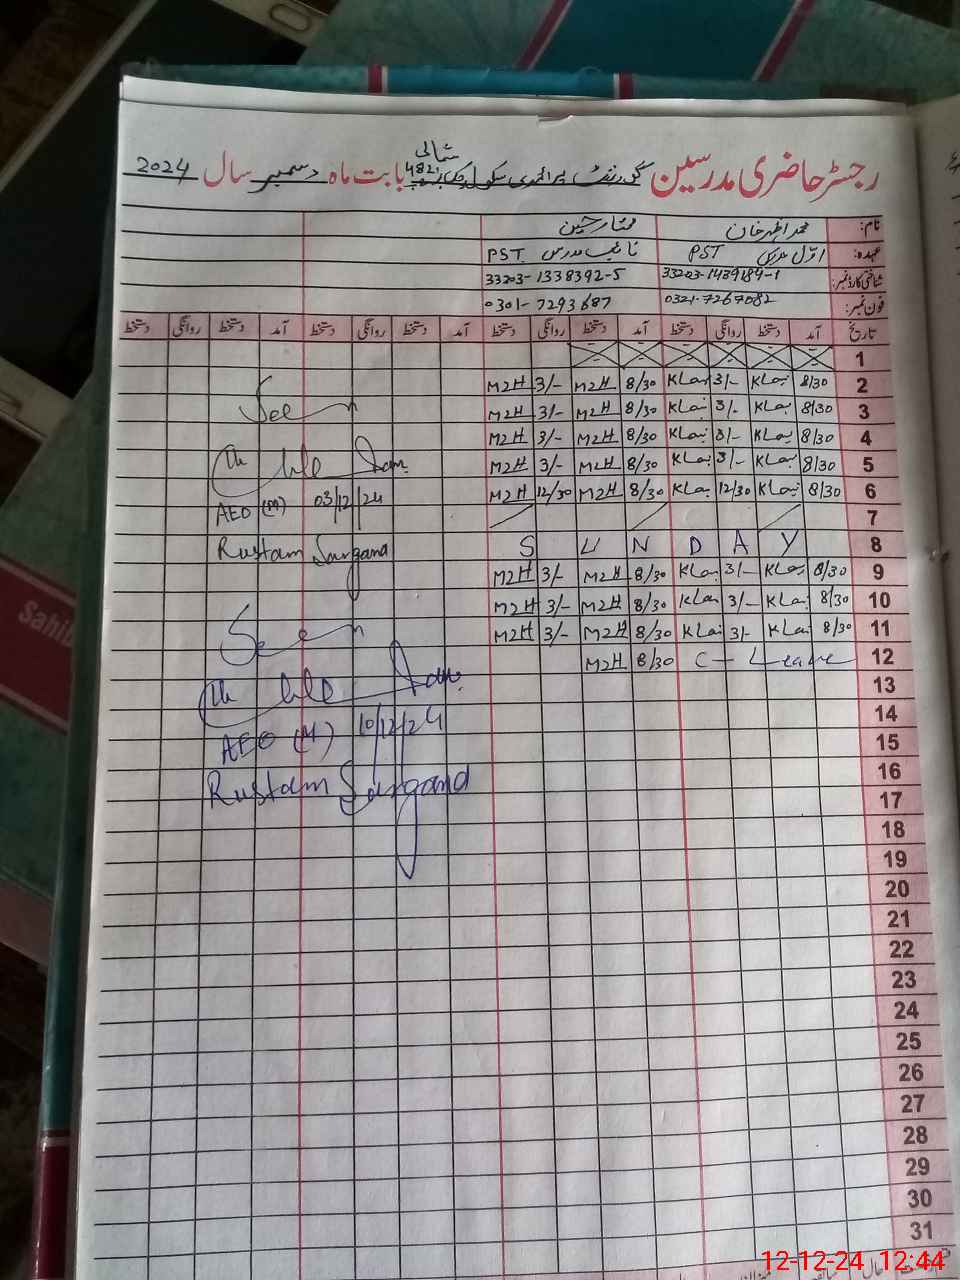 رجسٹر حاضری مدرسین گورنمنٹ پرائمری سکول 482 شمالی بابت ماہ دسمبر سال 2024
نام: محمد اظہر خان ممتاز حسین
عہدہ: اوّل مدرس PST نائب مدرس PST
شناختی کارڈ نمبر: 33203-1439184-1 33203-1338392-5
فون نمبر: 0321-7267082 0301-7293687
تاریخ آمد دستخط روانگی دستخط آمد دستخط روانگی دستخط آمد دستخط روانگی دستخط آمد دستخط روانگی دستخط
1
2 8/30 3/- 8/30 M2H 3/- M2H
3 8/30 3/- 8/30 M2H 3/- M2H
4 8/30 3/- 8/30 M2H 3/- M2H
5 8/30 3/- 8/30 M2H 3/- M2H
6 8/30 12/30 8/30 M2H 12/30 M2H
7
8 S U N D A Y
9 8/30 3/- 8/30 M2H 3/- M2H
10 8/30 3/- 8/30 M2H 3/- M2H
11 8/30 3/- 8/30 M2H 3/- M2H
12 C- Leave 8/30 M2H
13
14
15
16
17
18
19
20
21
22
23
24
25
26
27
28
29
30
31
Seen
AEO (M) 03/12/24
Rustam Sargana
Seen
AEO (M) 10/12/24
Rustam Sargana
Sahi
12-12-24 12:44